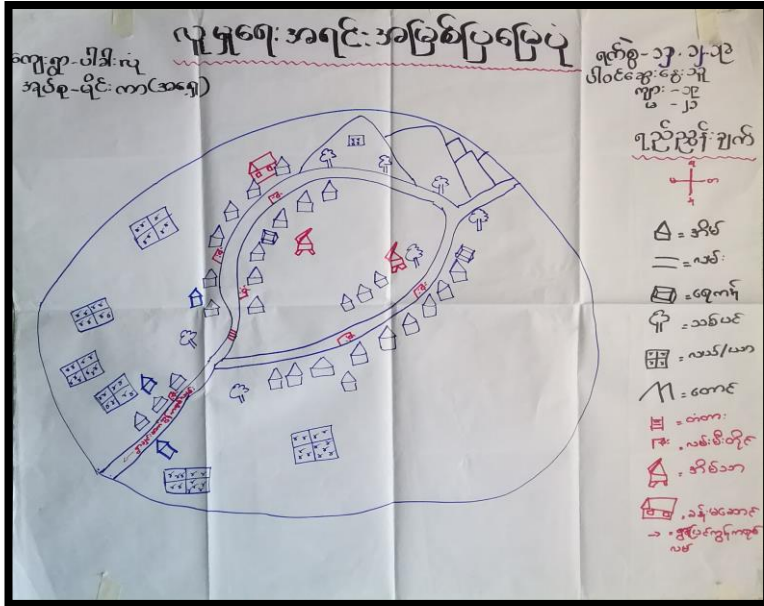 လူမှုရေးအရင်းအမြစ်ပြမြေပုံ
ကျေးရွာ-ပါဒါးလုံ
အုပ်စု-မိုင်းကာ(အရှေ့)
ရက်စွဲ-
ပါဝင်ဆွေးနွေးသူ
ကျား - ၁၉
မ - ၂၁
ရည်ညွှန်းချက်
= အိမ်
= လမ်း
= ရေကန်
= သစ်ပင်
= လယ်/ယာ
= တောင်
= တံတား
= လမ်းမီးတိုင်
= အိမ်သာ
= ခန်းမဆောင်
လမ်း